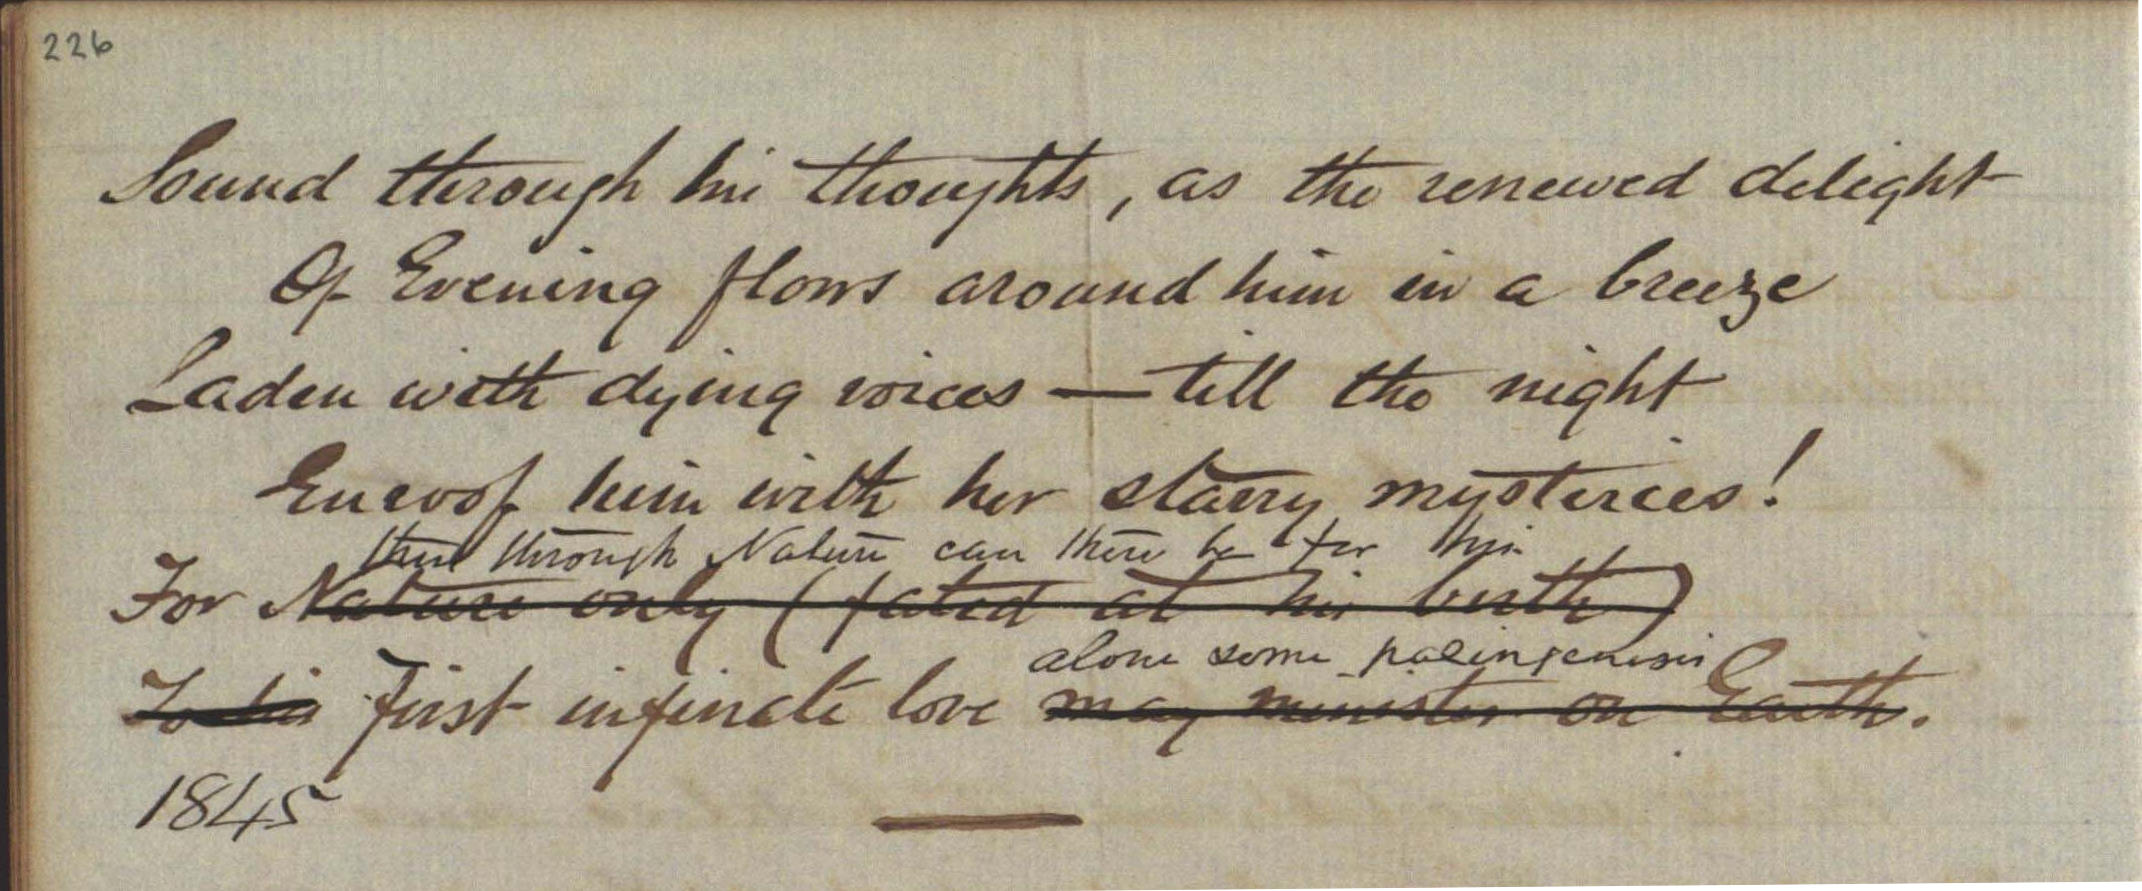 226
Sound through his thoughts, as the renewed delight
Of Evening flows around him in a breeze
Laden with dying voices — till the night
Enroof him with her starry mysteries!
through Nature can there be for him
For Nature only (fated at his birth)
alone some palingenesis
To his first infinate love may minister on Earth.
1845